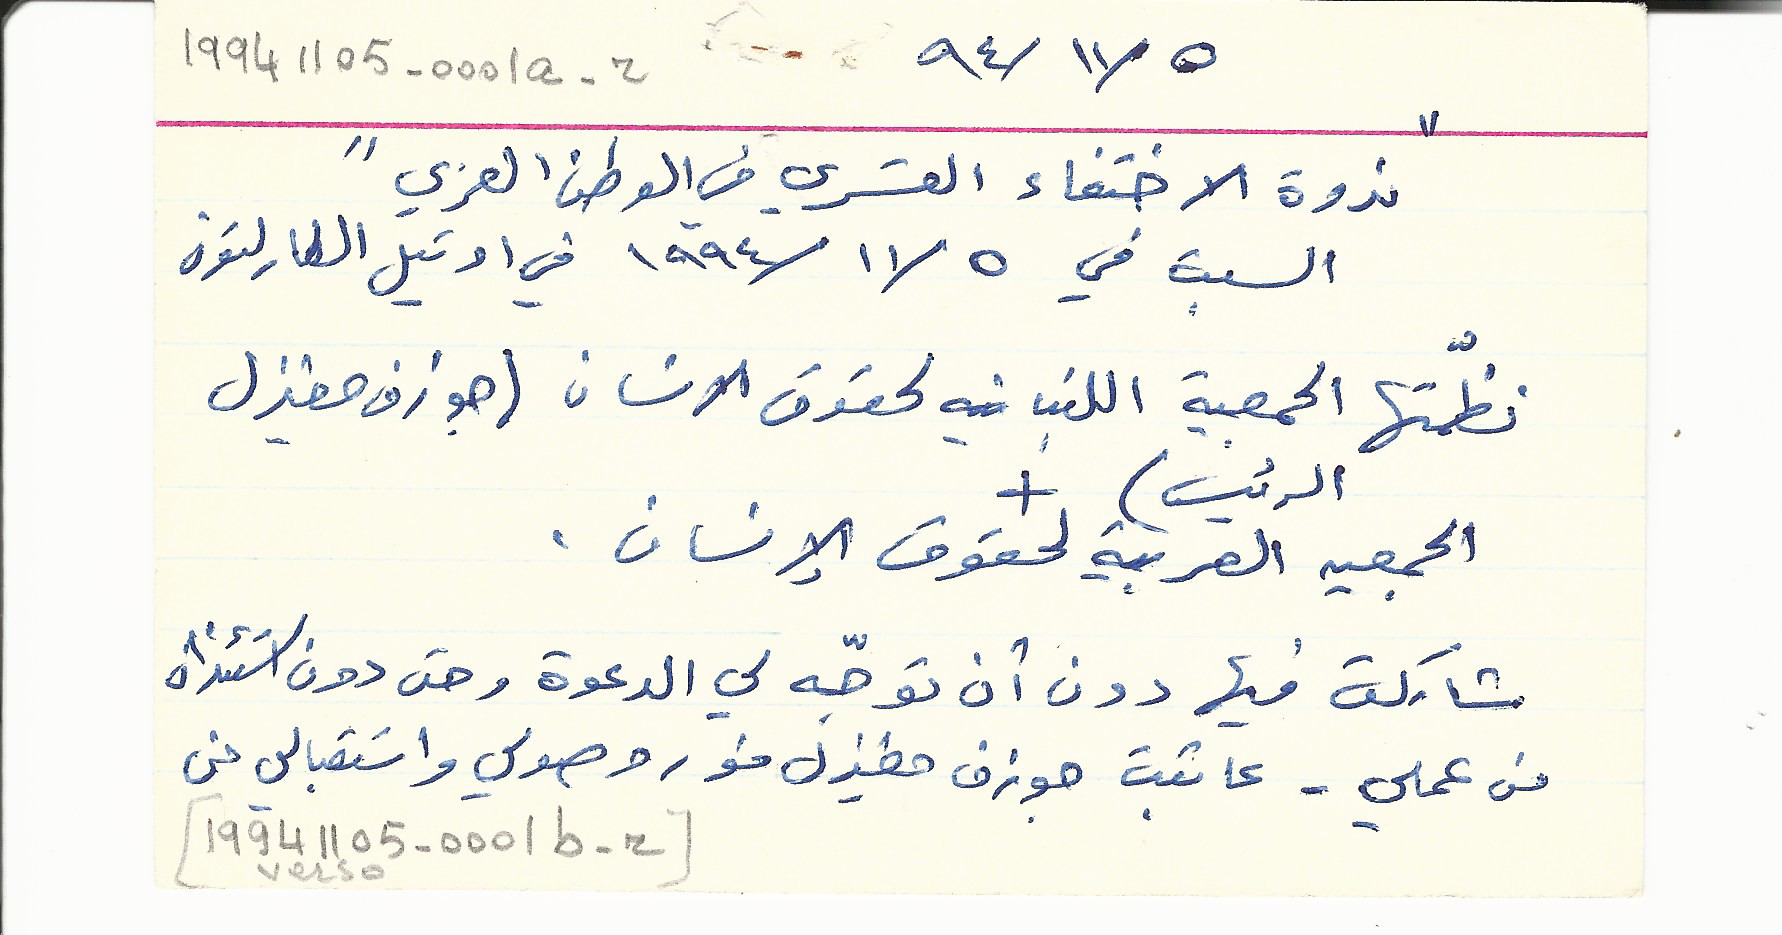 19941105-0001a-r
٥/١١/٩٤
"ندوة الاختفاء القسري في الوطن العربي"
السبت في ٥/١١/١٩٩٤ في اوتيل الكارلتون
نظّمتها الجمعية اللبنانيه لحقوق الانسان (جوزف مغيزل
الرئيس) +
الجمعيه العربية لحقوق الإنسان .
شاركت فيها دون أن توجّه لي الدعوة وحتى دون استئذان
من عملي - عاتبت جوزف مغيزل فور وصولي واستقبالي من
[19941105-0001b-r]
verso